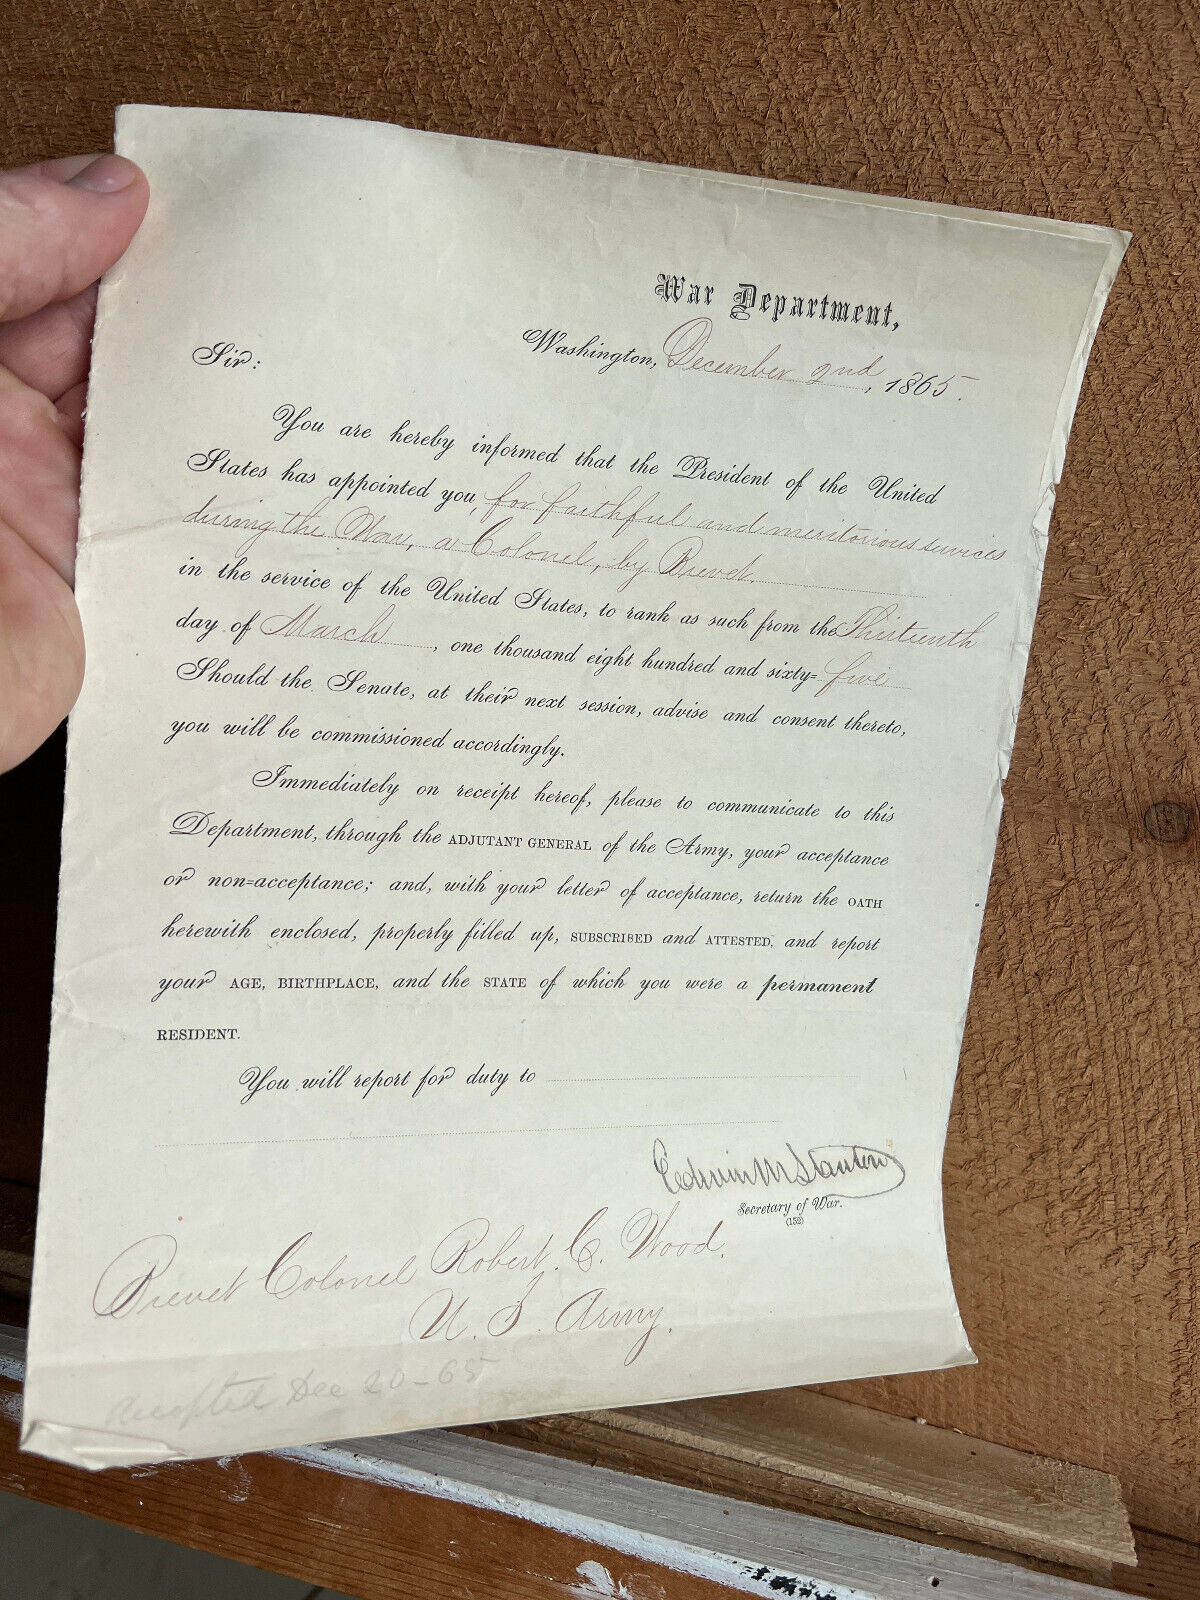 War Department,
Washington, December 2nd, 1865.
Sir:
You are hereby informed that the President of the United
States has appointed you, for faithful and meritorious services
during the War, a Colonel, by Brevet
in the service of the United States, to rank as such from the Thirteenth
day of March, one thousand eight hundred and sixty=five
Should the Senate, at their next session, advise and consent thereto,
you will be commissioned accordingly.
Immediately on receipt hereof, please to communicate to this
Department, through the ADJUTANT GENERAL of the Army, your acceptance
or non=acceptance; and, with your letter of acceptance, return the OATH
herewith enclosed, properly filled up, SUBSCRIBED and ATTESTED, and report
your AGE, BIRTHPLACE, and the STATE of which you were a permanent
RESIDENT.
You will report for duty to
Edwin M Stanton
Secretary of War.
(152)
Brevet Colonel Robert C. Wood,
U. S. Army.
Accepted Dec 20-65